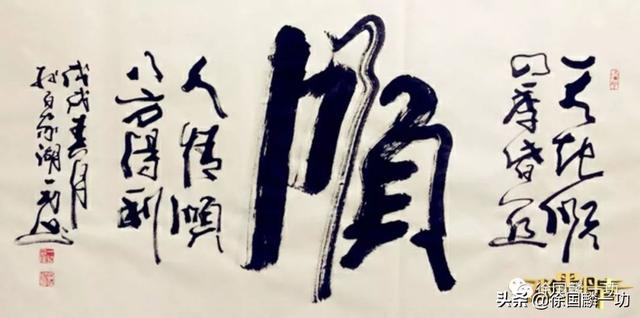 天地順
四季皆宜
順
人情順
八方得利
戊戌春月
於百家湖一功
头条 @徐国麟一功